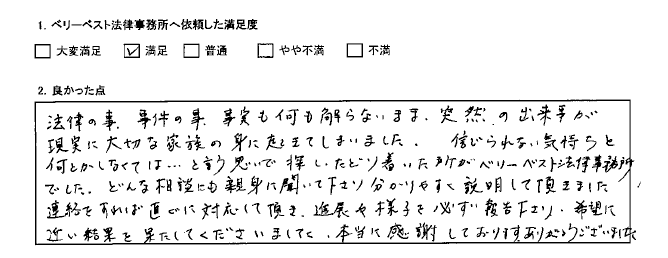 1. ベリーベスト法律事務所へ依頼した満足度
□ 大変満足 ☑ 満足 □ 普通 □ やや不満 □ 不満
2. 良かった点
法律の事、事件の事、事実も何も解らないまま、突然の出来事が
現実に大切な家族の身に起きてしまいました。 信じられない気持ちと
何とかしなくては…と言う思いで探し、たどり着いた所がベリーベスト法律事務所
でした。どんな相談にも親身に聞いて下さり分かりやすく説明して頂きました
連絡をすれば直ぐに対応して頂き、進展や様子を必ず報告下さり、希望に
近い結果を果たしてくださいまして、本当に感謝しております。ありがとうございました